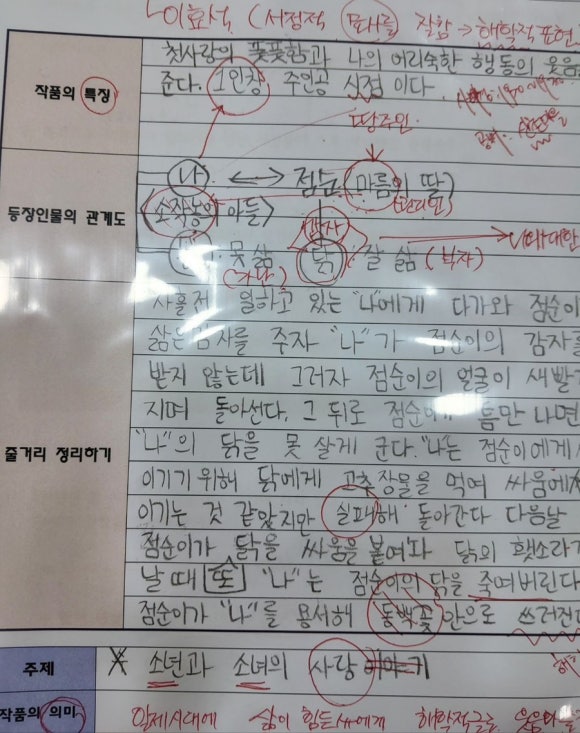 이효석 (서정적 묘사를 잘함 → 해학적 표현
첫사랑의 풋풋함과 나의 어리숙한 행동의 웃음
작품의 특징
준다. 1인칭 주인공 시점이다.
땅주인
나 ↔ 점순 (마름의 딸)
등장인물의 관계도
<소작농의 아들>
(관리인)
감자
못삶 닭 잘 삶 (부자)
(가난)
나에 대한
사흘전 일하고 있는 "나"에게 다가와 점순이
삶은 감자를 주자 "나"가 점순이의 감자를
받지 않는데 그러자 점순이의 얼굴이 새빨
지며 돌아선다. 그 뒤로 점순이가 틈만 나면
줄거리 정리하기
"나"의 닭을 못 살게 군다. "나"는 점순이에게
이기기 위해 닭에게 고추장물을 먹여 싸움에
이기는 것 같았지만 실패해 돌아간다 다음날
점순이가 닭을 싸움을 붙여놔 닭의 횃소리가
날 때 또 "나"는 점순이의 닭을 죽여버린다
점순이가 "나"를 용서해 동백꽃 안으로 쓰러진다
주제
소년과 소녀의 사랑 이야기
작품의 의미
일제시대에 삶이 힘든 해학적글로 웃음을